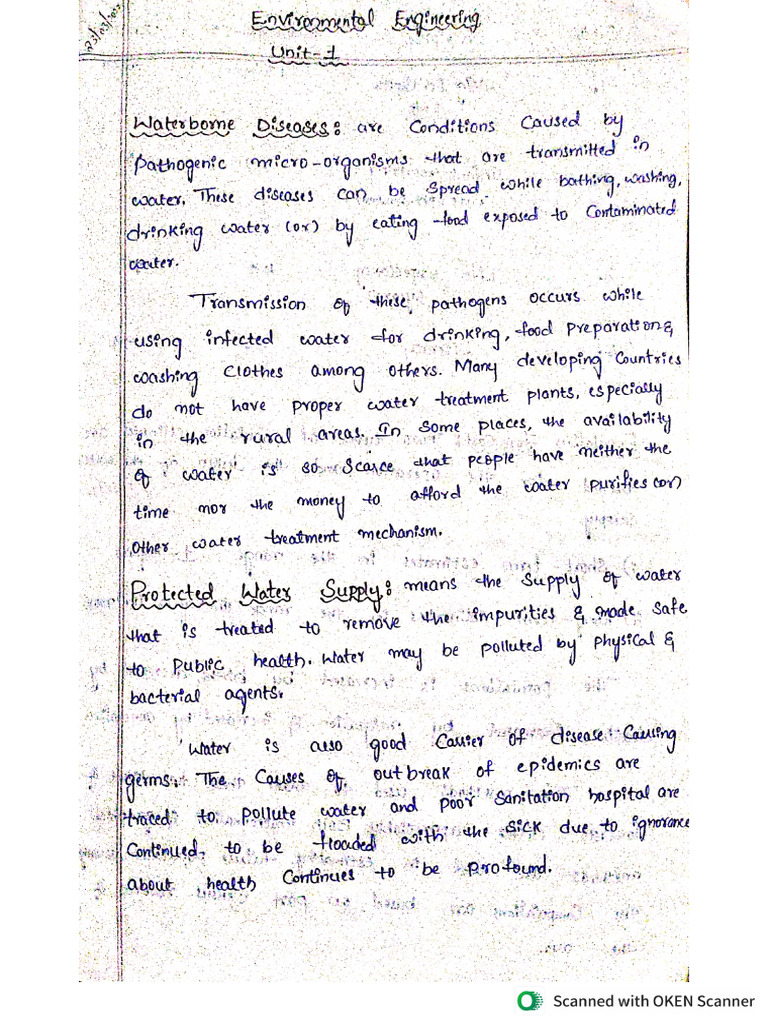 23/03/2023
Environmental Engineering
Unit-1
Waterborne Diseases: are Conditions Caused by
Pathogenic micro-organisms that are transmitted in
water. These diseases can be Spread while bathing, washing,
drinking water (or) by eating food exposed to Contaminated
water.
Transmission of these pathogens occurs while
using infected water for drinking, food preparation &
washing Clothes among others. Many developing Countries
do not have proper water treatment plants, especially
in the rural areas. In Some places, the availability
of water is so Scarce that people have neither the
time nor the money to afford the water purifies (or)
other water treatment mechanism.
Protected Water Supply: means the Supply of water
that is treated to remove the impurities & made Safe
to Public health. Water may be polluted by Physical &
bacterial agents.
Water is also good Carrier of disease Causing
germs. The Causes of outbreak of epidemics are
traced to pollute water and poor Sanitation hospital are
Continued to be flooded with the Sick due to ignorance
about health Continues to be Profound.
Scanned with OKEN Scanner